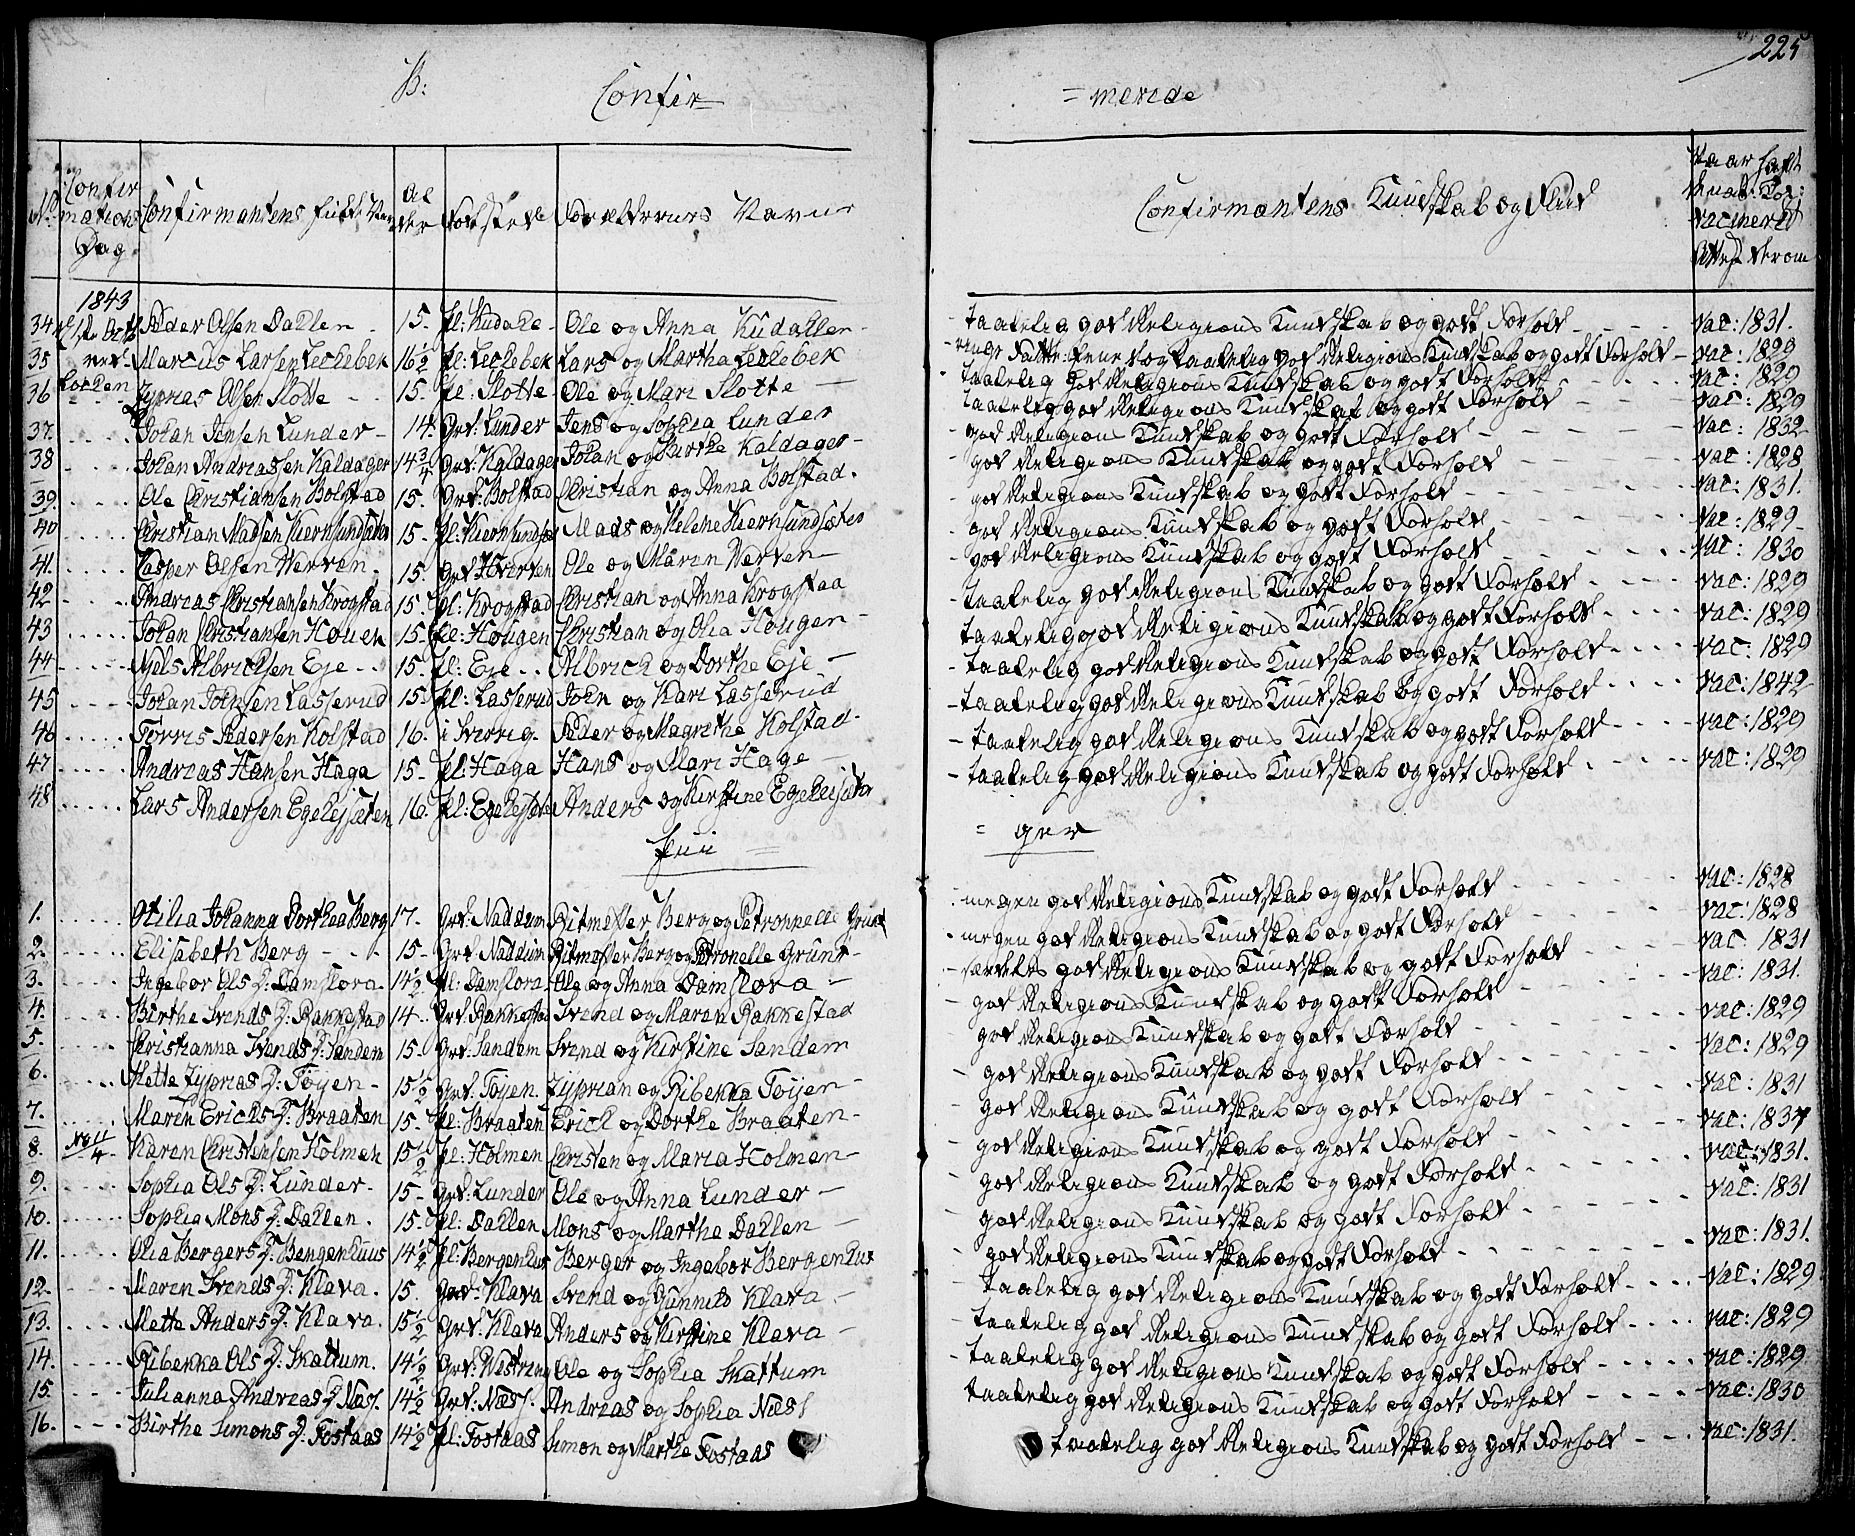 225
B:
Confir =
= merede
No
Confirmations Dag
Confirmantens fulde Navn
Alder
Fødested
Forældrenes Navne
Confirmantens Kundskab og Flid
Naar
vaccinered
1843
34 1ste Octb Peder Olsen Dahlen - 15. fl: Kudahle - Ole og Anna Kudahlen - taalelig god Religions Kundskab og godt Forhold - vac: 1831.
35 ved Marcus Larsen Lechebek 16½ fl: Lechebek Lars og Martha Lechebek - taalelig god Religions Kundskab og godt Forhold - vac: 1829
36 Kirken Zyprias Olsen Slotte - 15. fl: Slotte - Ole og Mari Slotte - taalelig god Religions Kundskab og godt Forhold - vac: 1829
37. Johan Jensen Lunder - 14. Grd: Lunder Jens og Sophia Lunder - taalelig god Religions Kundskab og godt Forhold - vac: 1829
38 Johan Andreassen Kaldager 14¾ Grd: Kaldager Johan og Birthe Kaldager - god Religions Kundskab og godt Forhold - vac: 1832
39. Ole Christiansen Bolstad 15. Grd: Bolstad Christian og Anna Bolstad. - god Religions Kundskab og godt Forhold - vac: 1828
40 Christian Madsen Kiernsundsæter 15. fl: Kiernsundsæt Mads og Helene Kiernsundsæter - god Religions Kundskab og godt Forhold - vac: 1831.
41. Casper Olsen Verven. 15. Grd Hverven Ole og Maren Verven - god Religions Kundskab og godt Forhold - vac: 1829
42 Andreas Christiansen Krogstad 15. fl: Krogstad Christian og Anna Krogstad - god Religions Kundskab og godt Forhold - vac: 1830
43 Johan Christiansen Houen 15. fl: Hougen Christian og Olia Hougen - taalelig god Religions Kundskab og godt Forhold - vac: 1829
44 Niels Albrichsen Eje - 15. fl: Eje - Albrich og Dorthe Eje - taalelig god Religions Kundskab og godt Forhold - vac: 1829
45 Johan Johnsen Lasserud 15. fl: Lasserud John og Kari Lasserud - taalelig god Religions Kundskab og godt Forhold - vac: 1829
46 Torris Pedersen Kolstad 16. i Sverrig. Peder og Magrethe Kolstad - taalelig god Religions Kundskab og godt Forhold - vac: 1842
47 Andreas Hansen Haga 15. fl: Haga Hans og Mari Hage - taalelig god Religions Kundskab og godt Forhold - vac: 1829
48 Lars Andersen Egelejsæten 16. fl: Egelejsæte Anders og Kirstine Egelejsæter - taalelig god Religions Kundskab og godt Forhold - vac: 1829
Pii =
= ger
1. Otilia Johanna Dorthea Berg 17. Grd: Naddum Ritmester Berg og Petronnelle Grund - megen god Religions Kundskab og godt Forhold - vac: 1828
2. Elisabeth Berg - 15. Grd: Naddum Ritmester Berg og Petronelle Grund - megen god Religions Kundskab og godt Forhold - vac: 1828
3. Ingebor Ols D: Damslora 14½ fl: Damslora Ole og Anna Damslora - særdeles god Religions Kundskab og godt Forhold - vac: 1831
4. Birthe Svends D: Rakkestad 14. Grd. Rakkestad Svend og Maren Rakkestad - god Religions Kundskab og godt Forhold - vac: 1831.
5. Christianna Svends D: Sandem 15. Grd. Sandem Svend og Kirstine Sandem - god Religions Kundskab og godt Forhold - vac: 1829
6. Mette Zyprias D: Töyen - 15½ Grd. Töyen. Zyprian og Ribekka Töyen - god Religions Kundskab og godt Forhold - vac: 1829
7. Maren Erichs D: Braaten 15. fl: Braaten Erich og Dorthe Braaten - god Religions Kundskab og godt Forhold - vac: 1831
8. No 11/4 Karen Christensen Holmen 15½ fl: Holmen Christen og Maria Holmen - god Religions Kundskab og godt Forhold - vac: 1837
9. Sophia Ols D: Lunder. 15. Grd: Lunder Ole og Anna Lunder - god Religions Kundskab og godt Forhold - vac: 1831.
10. Sophia Mons D: Dahlen. 15. fl: Dahlen Mons og Marthe Dahlen - god Religions Kundskab og godt Forhold - vac: 1831
11. Olia Bergers D: Bergenhuus 14½ fl: Bergenhus Berger og Ingebor Bergenhus - god Religions Kundskab og godt Forhold - vac: 1831.
12. Maren Svends D: Klava. 15. Grd: Klava Svend og Gunnild Klava - taalelig god Religions Kundskab og godt Forhold - vac: 1829
13. Mette Anders D: Klava. 15½ Grd: Klava Anders og Kirstine Klava - taalelig god Religions Kundskab og godt Forhold - vac: 1829
14. Ribekka Ols D: Skattum. 14½ Grd: Westreng Ole og Sophia Skattum - taalelig god Religions Kundskab og godt Forhold - vac: 1829
15. Julianna Andreas D: Næss. 14½ Grd: Næss. Andreas og Sophia Næss - taalelig god Religions Kundskab og godt Forhold - vac: 1830
16. Birthe Simons D: Fostaas 14½ fl: Fostaas Simon og Marthe Fostaas - taalelig god Religions Kundskab og godt Forhold - vac: 1831.